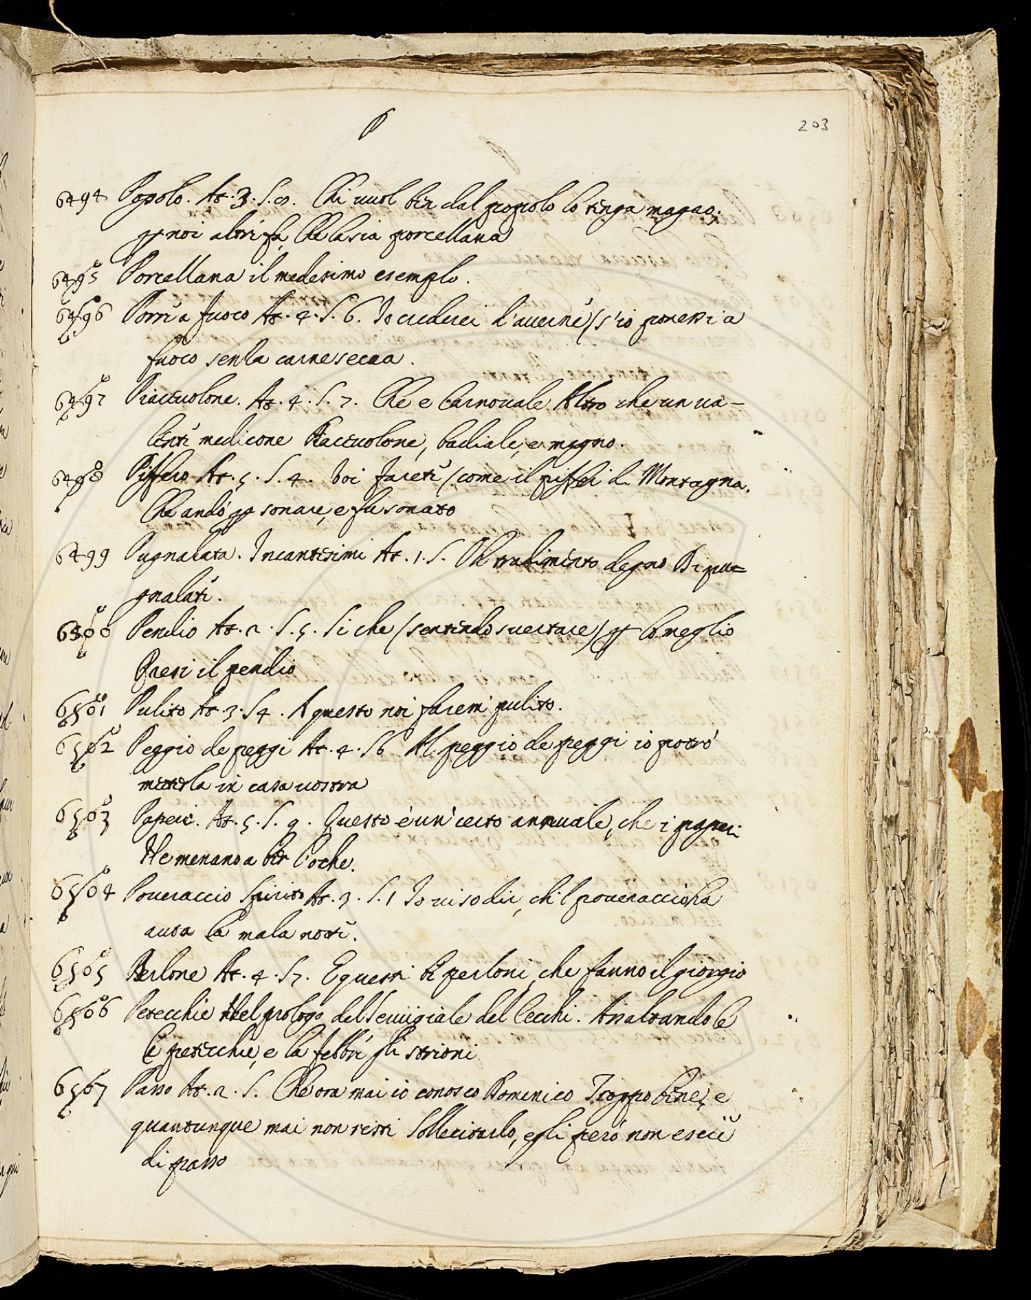 P
203
6494 Popolo. At. 3. S. 9. Chi vuol ber dal popolo lo tenga magro,
noi altri fa, che la sia porcellana
6495 Porcellana il medesimo esemplo.
6496 Porri a fuoco At. 4. S. 6. Io crederei d'averne, s'io ponessi a
fuoco senza carnesecca.
6497 Piacevolone. At. 4. S. 7. Che e Carnovale Altro che un va-
lenti medicone Piacevolone, badiale, e magno.
6498 Piffero At. 5. S. 4. Voi fareti come il piffer di Montagna.
Che andò per sonare, e fu sonato
6499 Pugnalata. Incantesimi At. 1. S. Oh tradimento degno Di pu=
gnalati.
6500 Pendio At. 2. S. 5. Si che (sentendo svertare) per lo meglio
Presi il pendio
6501 Pulito At. 3. S 4. A questo noi farem pulito.
6502 Peggio de peggi At. 4. S 6 Al peggio de peggi io potrò
metterla in casa vostra
6503 Paperi. At. 5. S. 9. Questo è un certo annuale, che i paperi
Ne menano a ber l'oche.
6504 Poveraccio Spirito At. 3. S. 1 Io vi so dir, ch'l poveraccio ha
avuta la mala notte.
6505 Perlone At. 4. S 7. E questi perloni, che fanno il giorgio
6506 Petecchie Nel prologo del Servigiale del Cecchi. Ansaltandole
Le petecchie, e la febbre gli strioni
6507 Passo At. 2. S. Che ora mai io conosco Domenico Troppo bene, e
quantunque mai non resti Sollecitarlo, egli però non escie
di passo